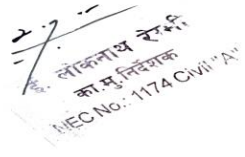 ई. लोकनाथ रेग्मी
का.मु.निर्देशक
NEC No.: 1174 Civil "A"